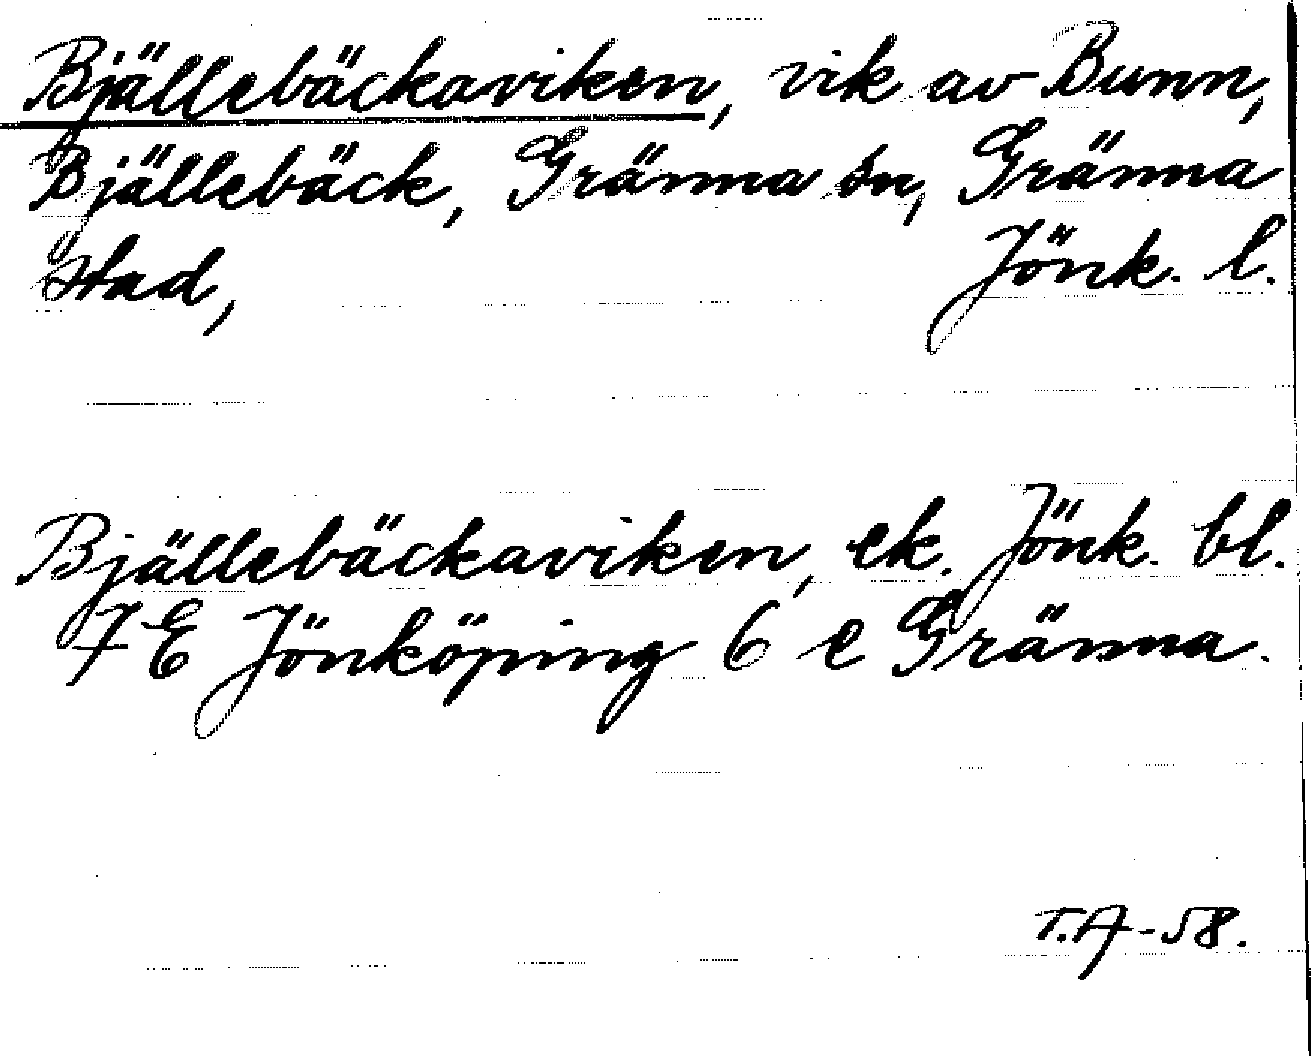 Bjällebäckaviken, vik av Bunn,
Bjällebäck, Gränna sn, Gränna
stad, Jönk. l.
Bjällebäckaviken, ek. Jönk. bl.
7 E Jönköping 6 e Gränna.
T.A-58.